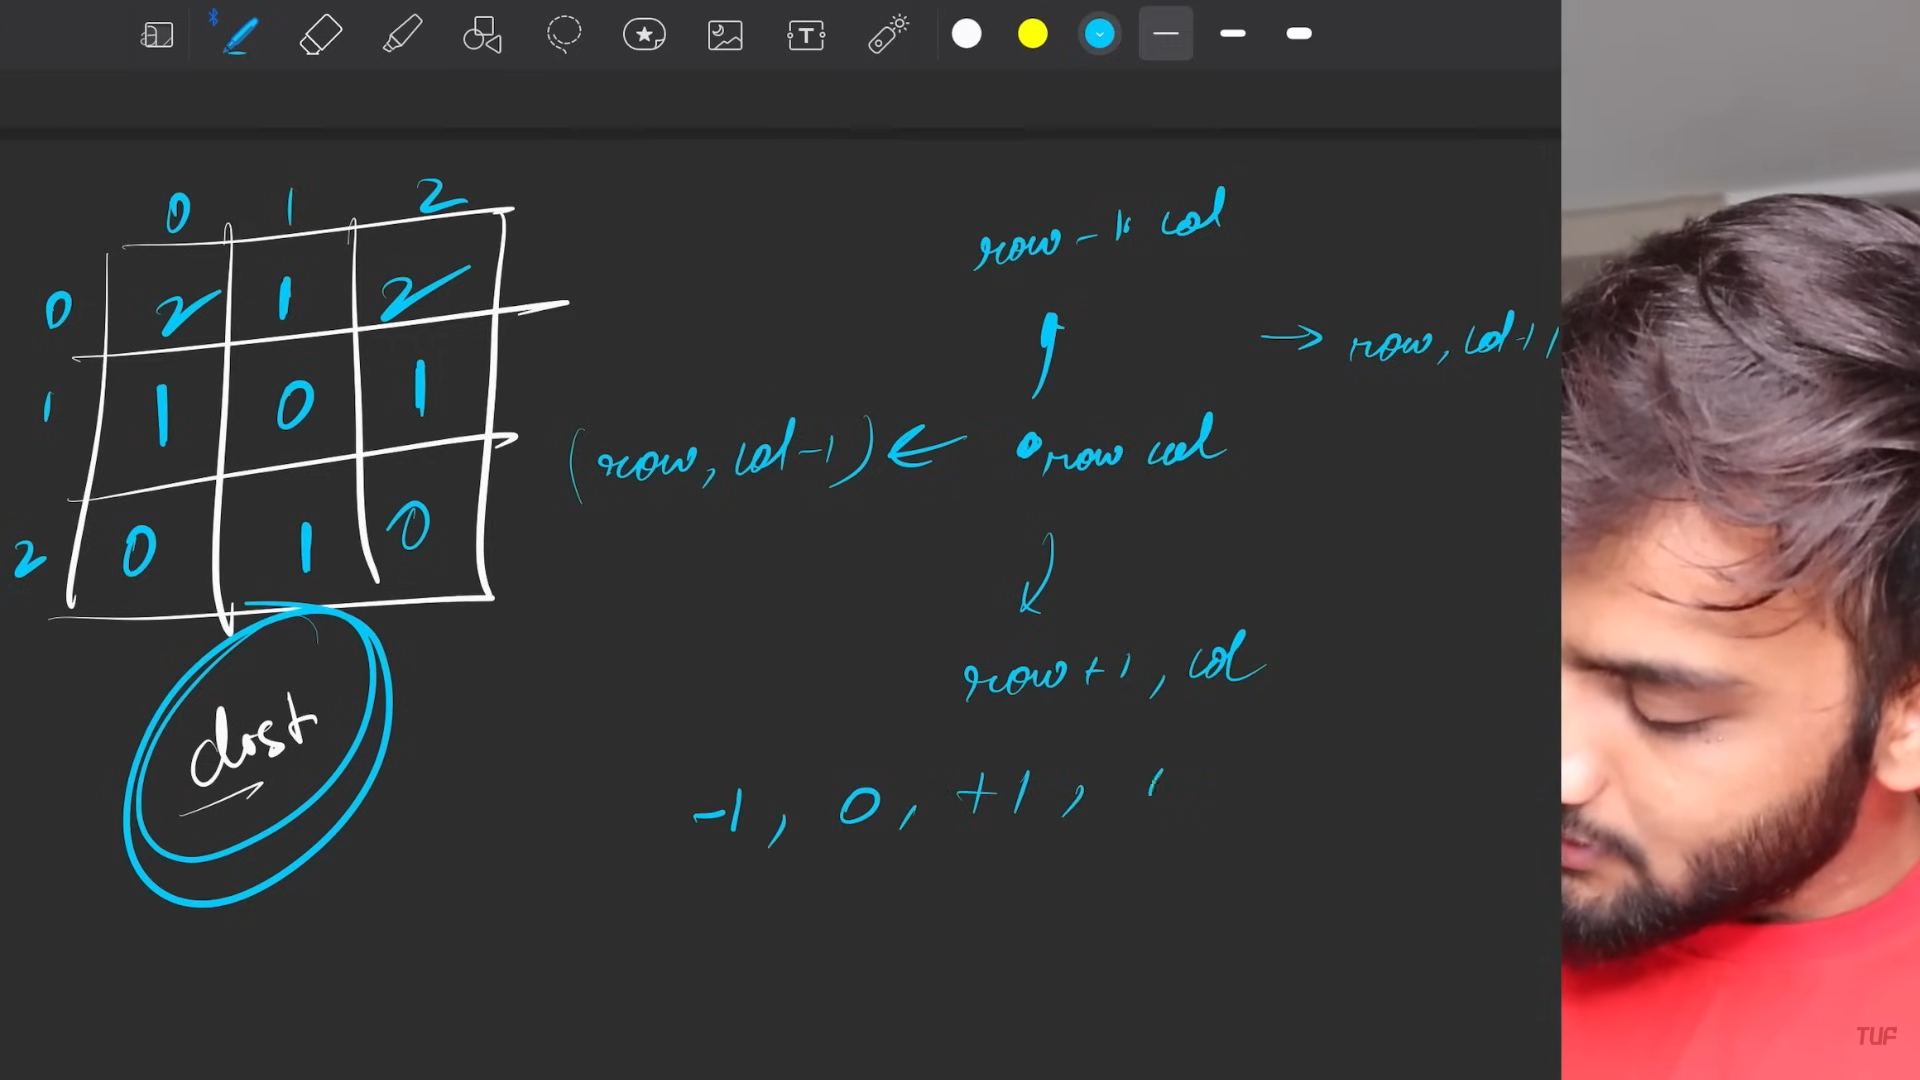 0 1 2
0 2 1 2
1 1 0 1
2 0 1 0
dist
row-1, col
→ row, col+1
(row, col-1) ← row col
row+1, col
-1, 0, +1,
T
TUF